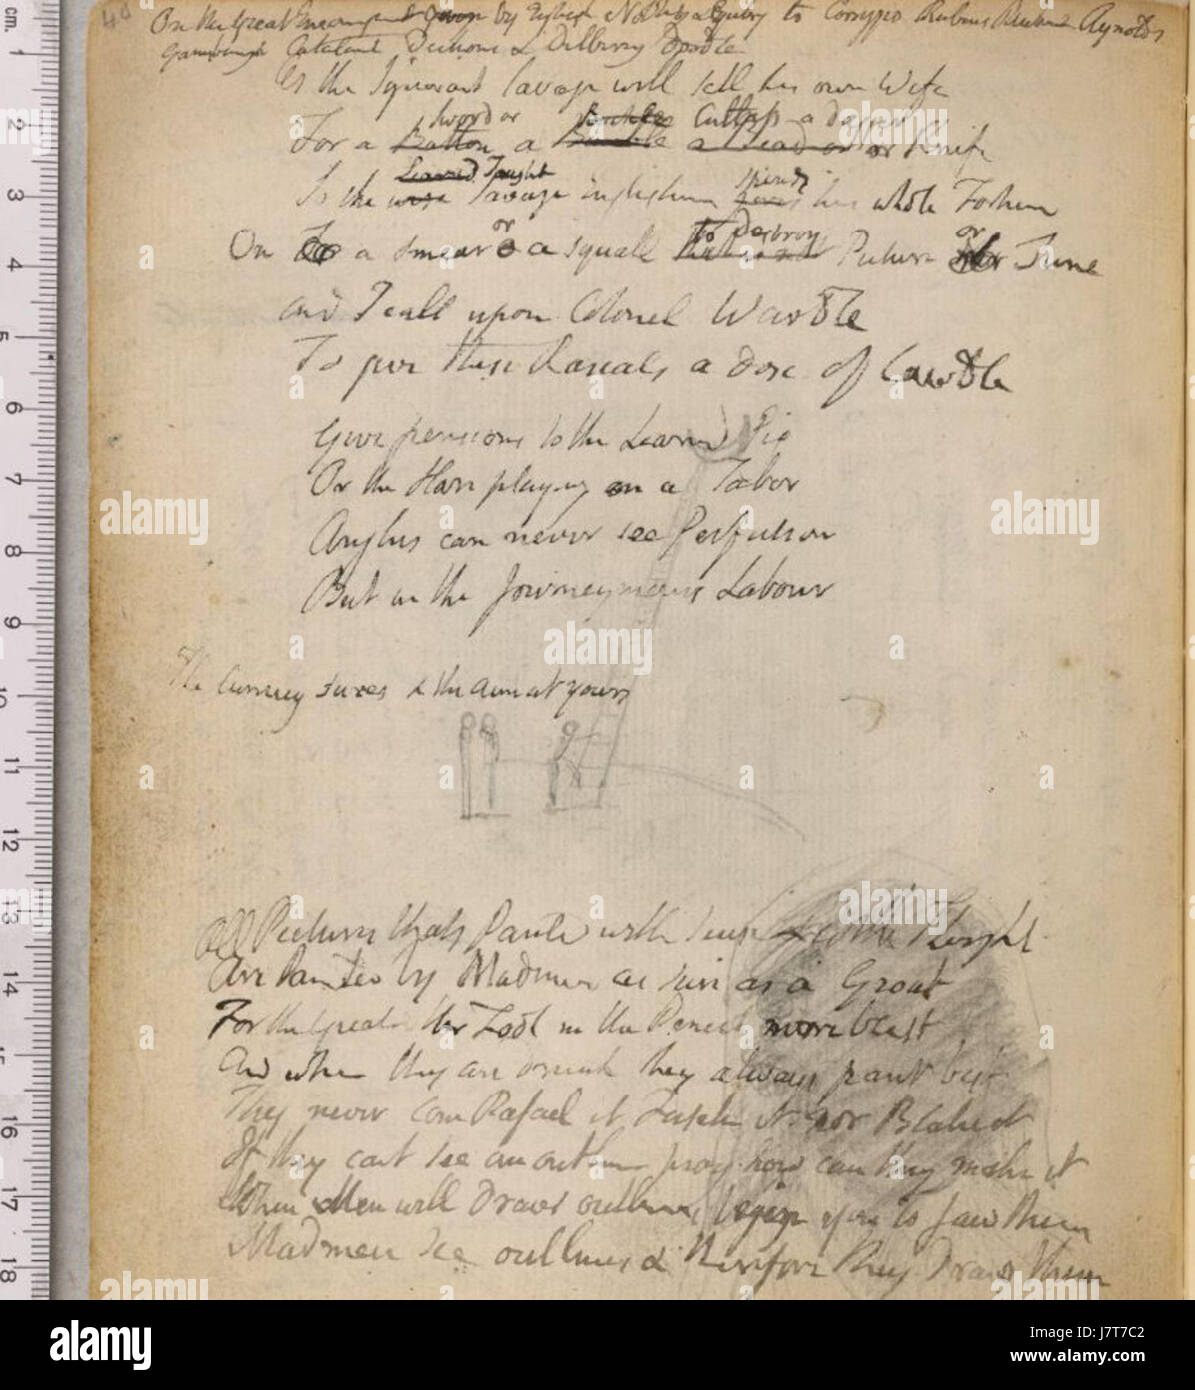 40
On the Great Encouragement Given by English Nobility & Gentry to Correggio Rubens Reynolds
Gainsborough Catalani DuCrowe & Dilbury Doodle
As the Ignorant Savage will sell his own Wife
Sword or Buckle Cutlass a dagger
For a Button a Bauble a Bead or Knife
Learned Taught spends
So the wise Savage Englishman gives his whole Fortune
or to Destroy or
On a smear or a squall Picture or Tune
and I call upon Colonel Wardle
To give these Rascals a dose of Cawdle
Give pensions to the Learned Pig
Or the Hare playing on a Tabor
Anglus can never see Perfection
But in the Journeymans Labour
The Cunning sures & the aim at yours
All Pictures thats Painted with Sense & with Thought
Are Painted by Madmen as sure as a Groat
For the Greater the Fool in the Pencil more blest
And when they are drunk they always paint best
They never can Rafael it Fuseli it nor Blake it
If they cant see an outline pray how can they make it
When Men will draw outlines begin you to jaw them
Madmen see outlines & therefore they draw them
cm. 1 2 3 4 5 6 7 8 9 10 11 12 13 14 15 16 17 18
alamy
a
alamy
Image ID: J7T7C2
www.alamy.com